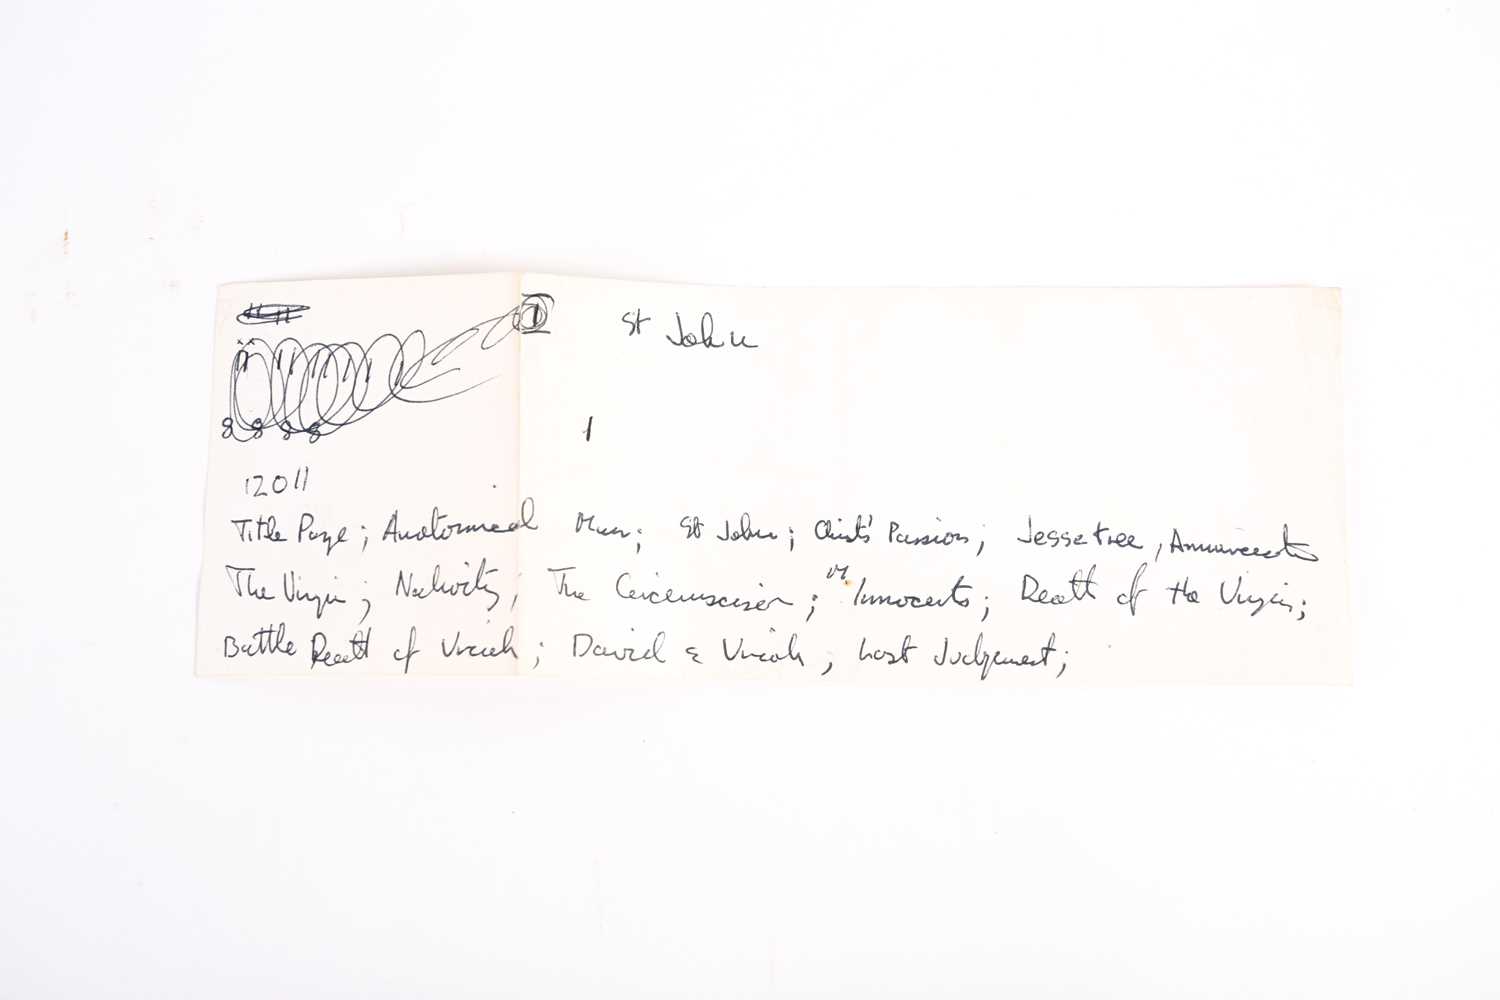 1 St John
8 8 8 8
1
12011
Title Page; Anatomical Man; St John; Christ's Passion; Jesse tree, Annunciat
The Virgin; Nativity; The Circumcision; M. Innocents; Death of the Virgin;
Battle Death of Uriah; David & Uriah, Last Judgement;